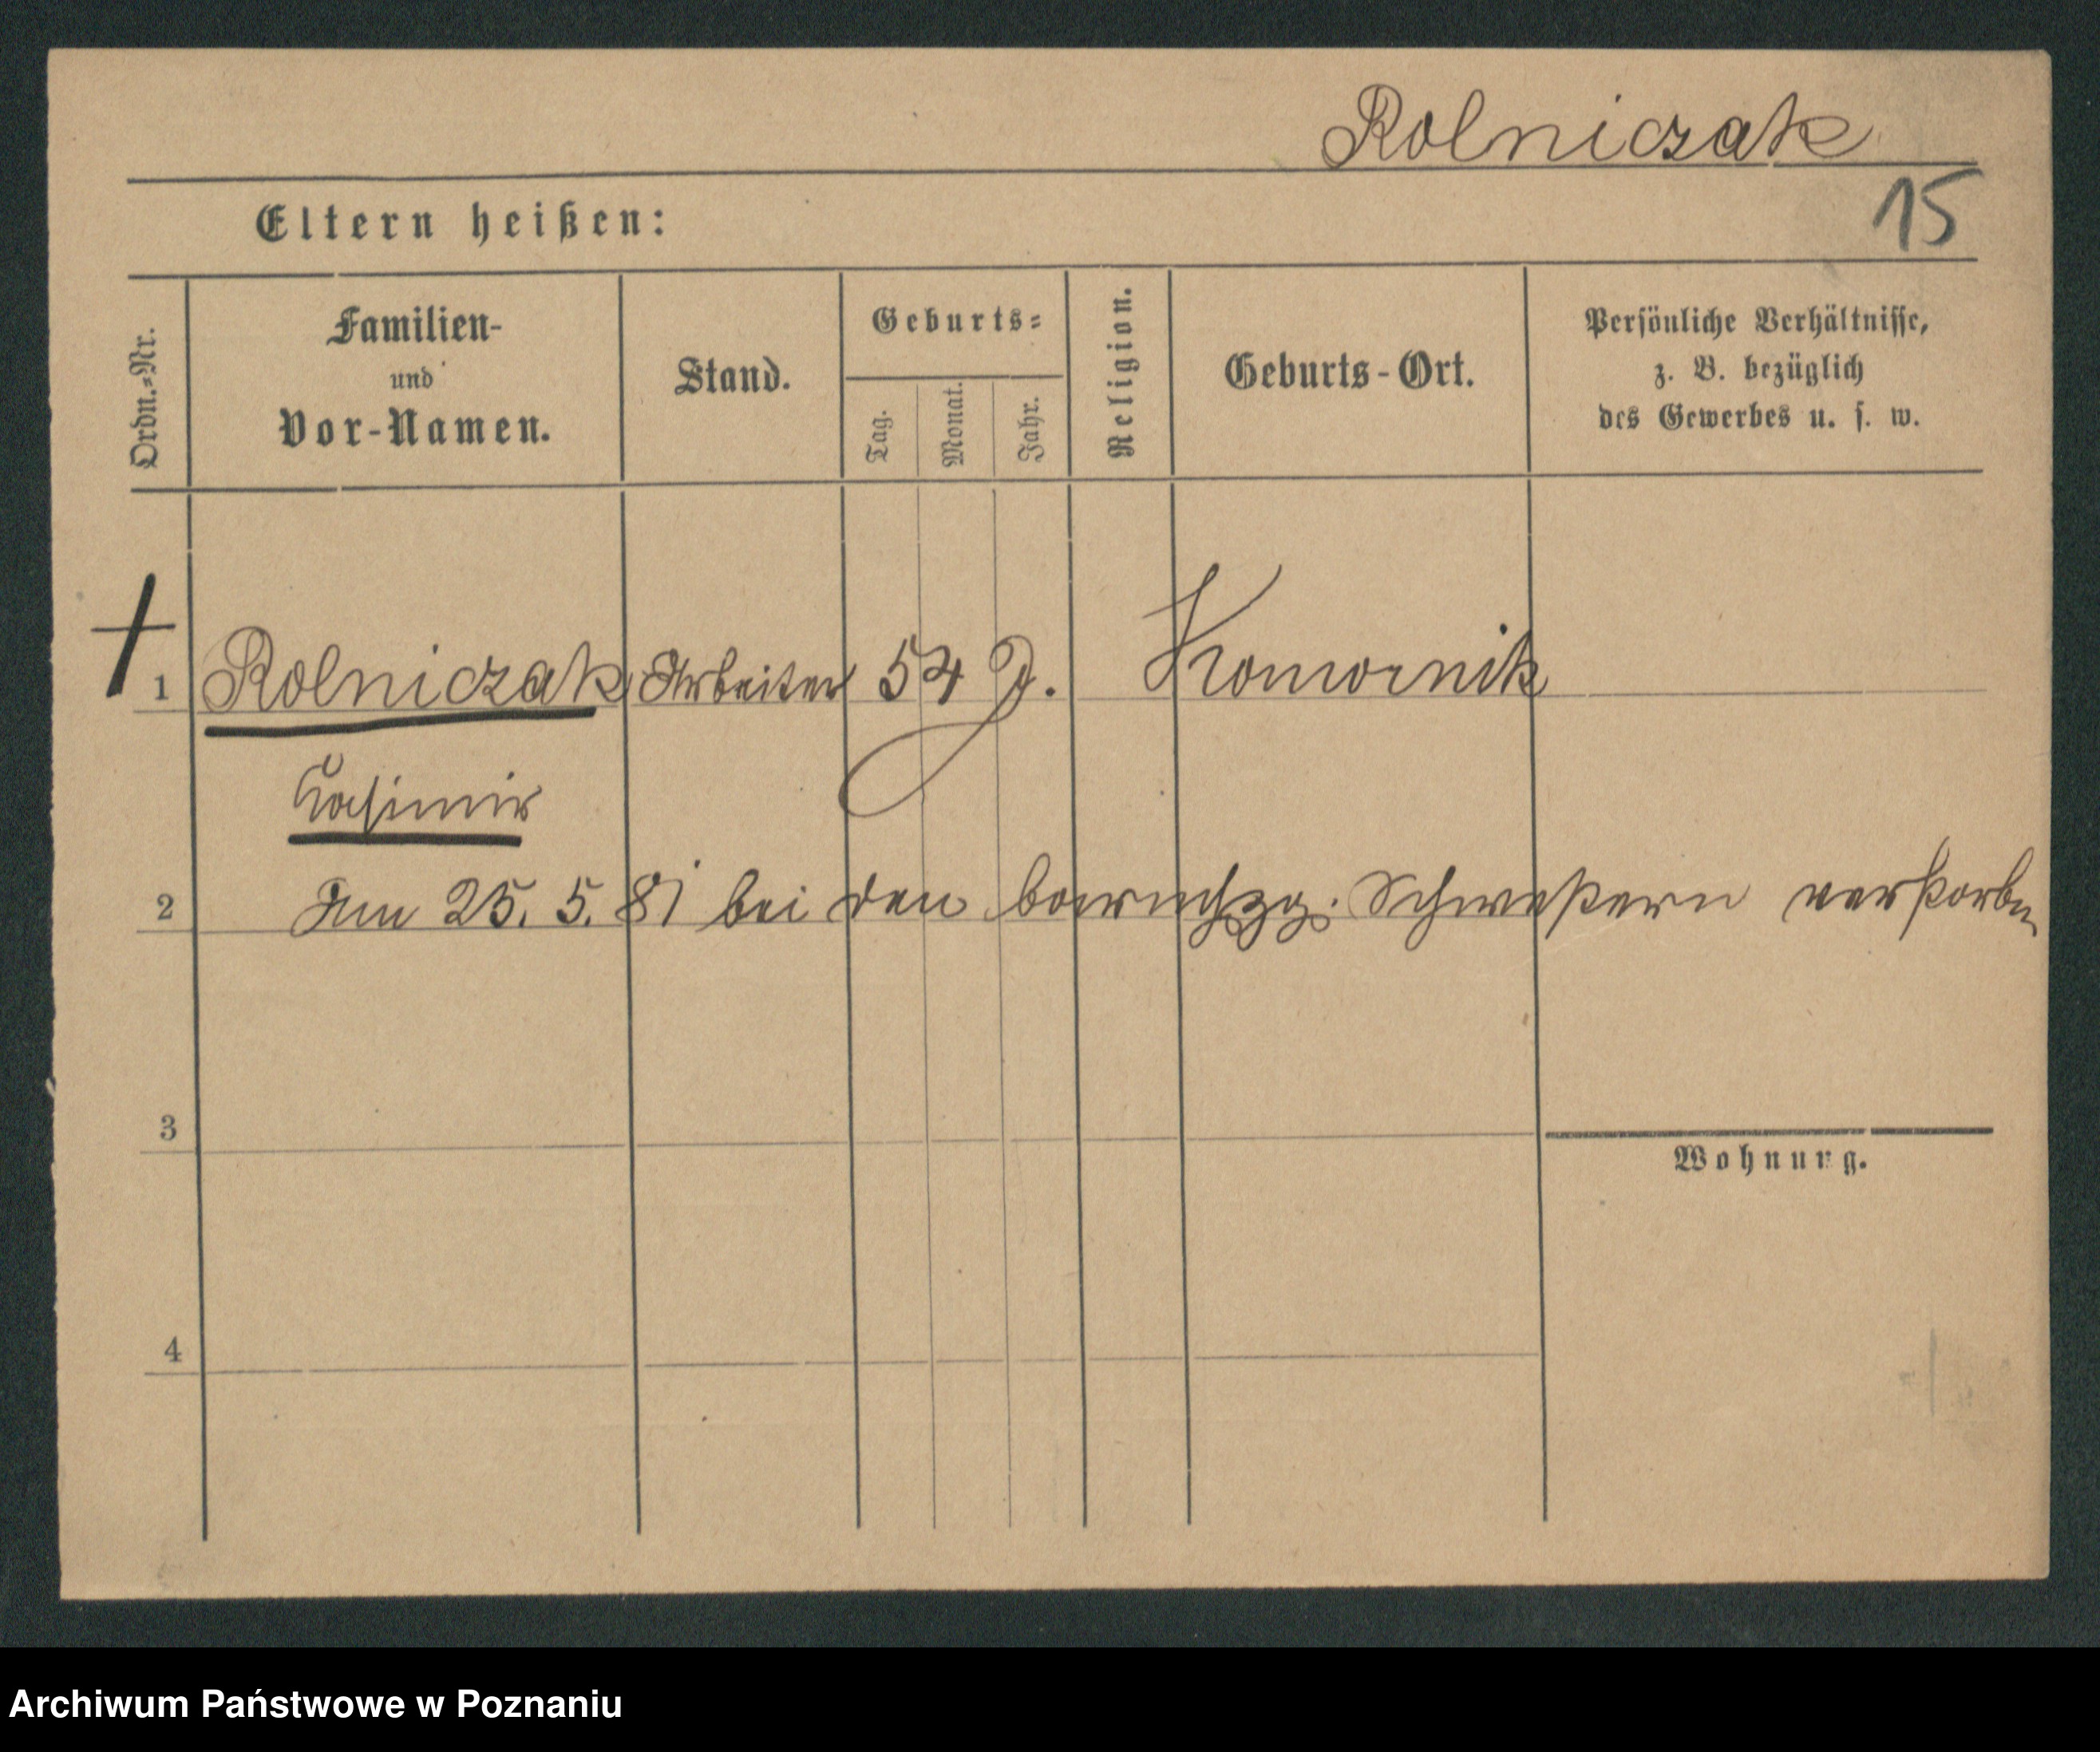 Rolniczak
15
Eltern heißen:
Ordn.=Nr.
Familien-
und
Vor-Namen.
Stand.
Geburts=
Tag.
Monat.
Jahr.
Religion.
Geburts-Ort.
Persönliche Verhältnisse,
z. B. bezüglich
des Gewerbes u. s. w.
1 Rolniczak Arbeiter 54 J. Komornik
Casimir
2 Am 25. 5. 81 bei den barmhzg. Schwestern verstorben
3
Wohnung.
4
Archiwum Państwowe w Poznaniu